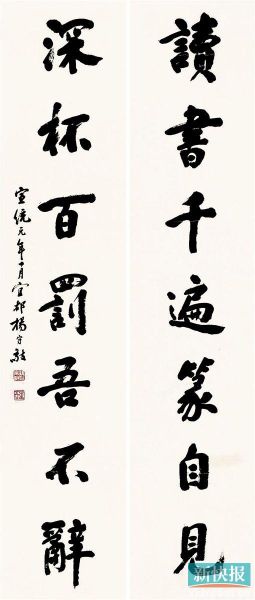 讀書千遍篆自見
深杯百罰吾不辭
宣統元年十月宜都楊守敬
新快报